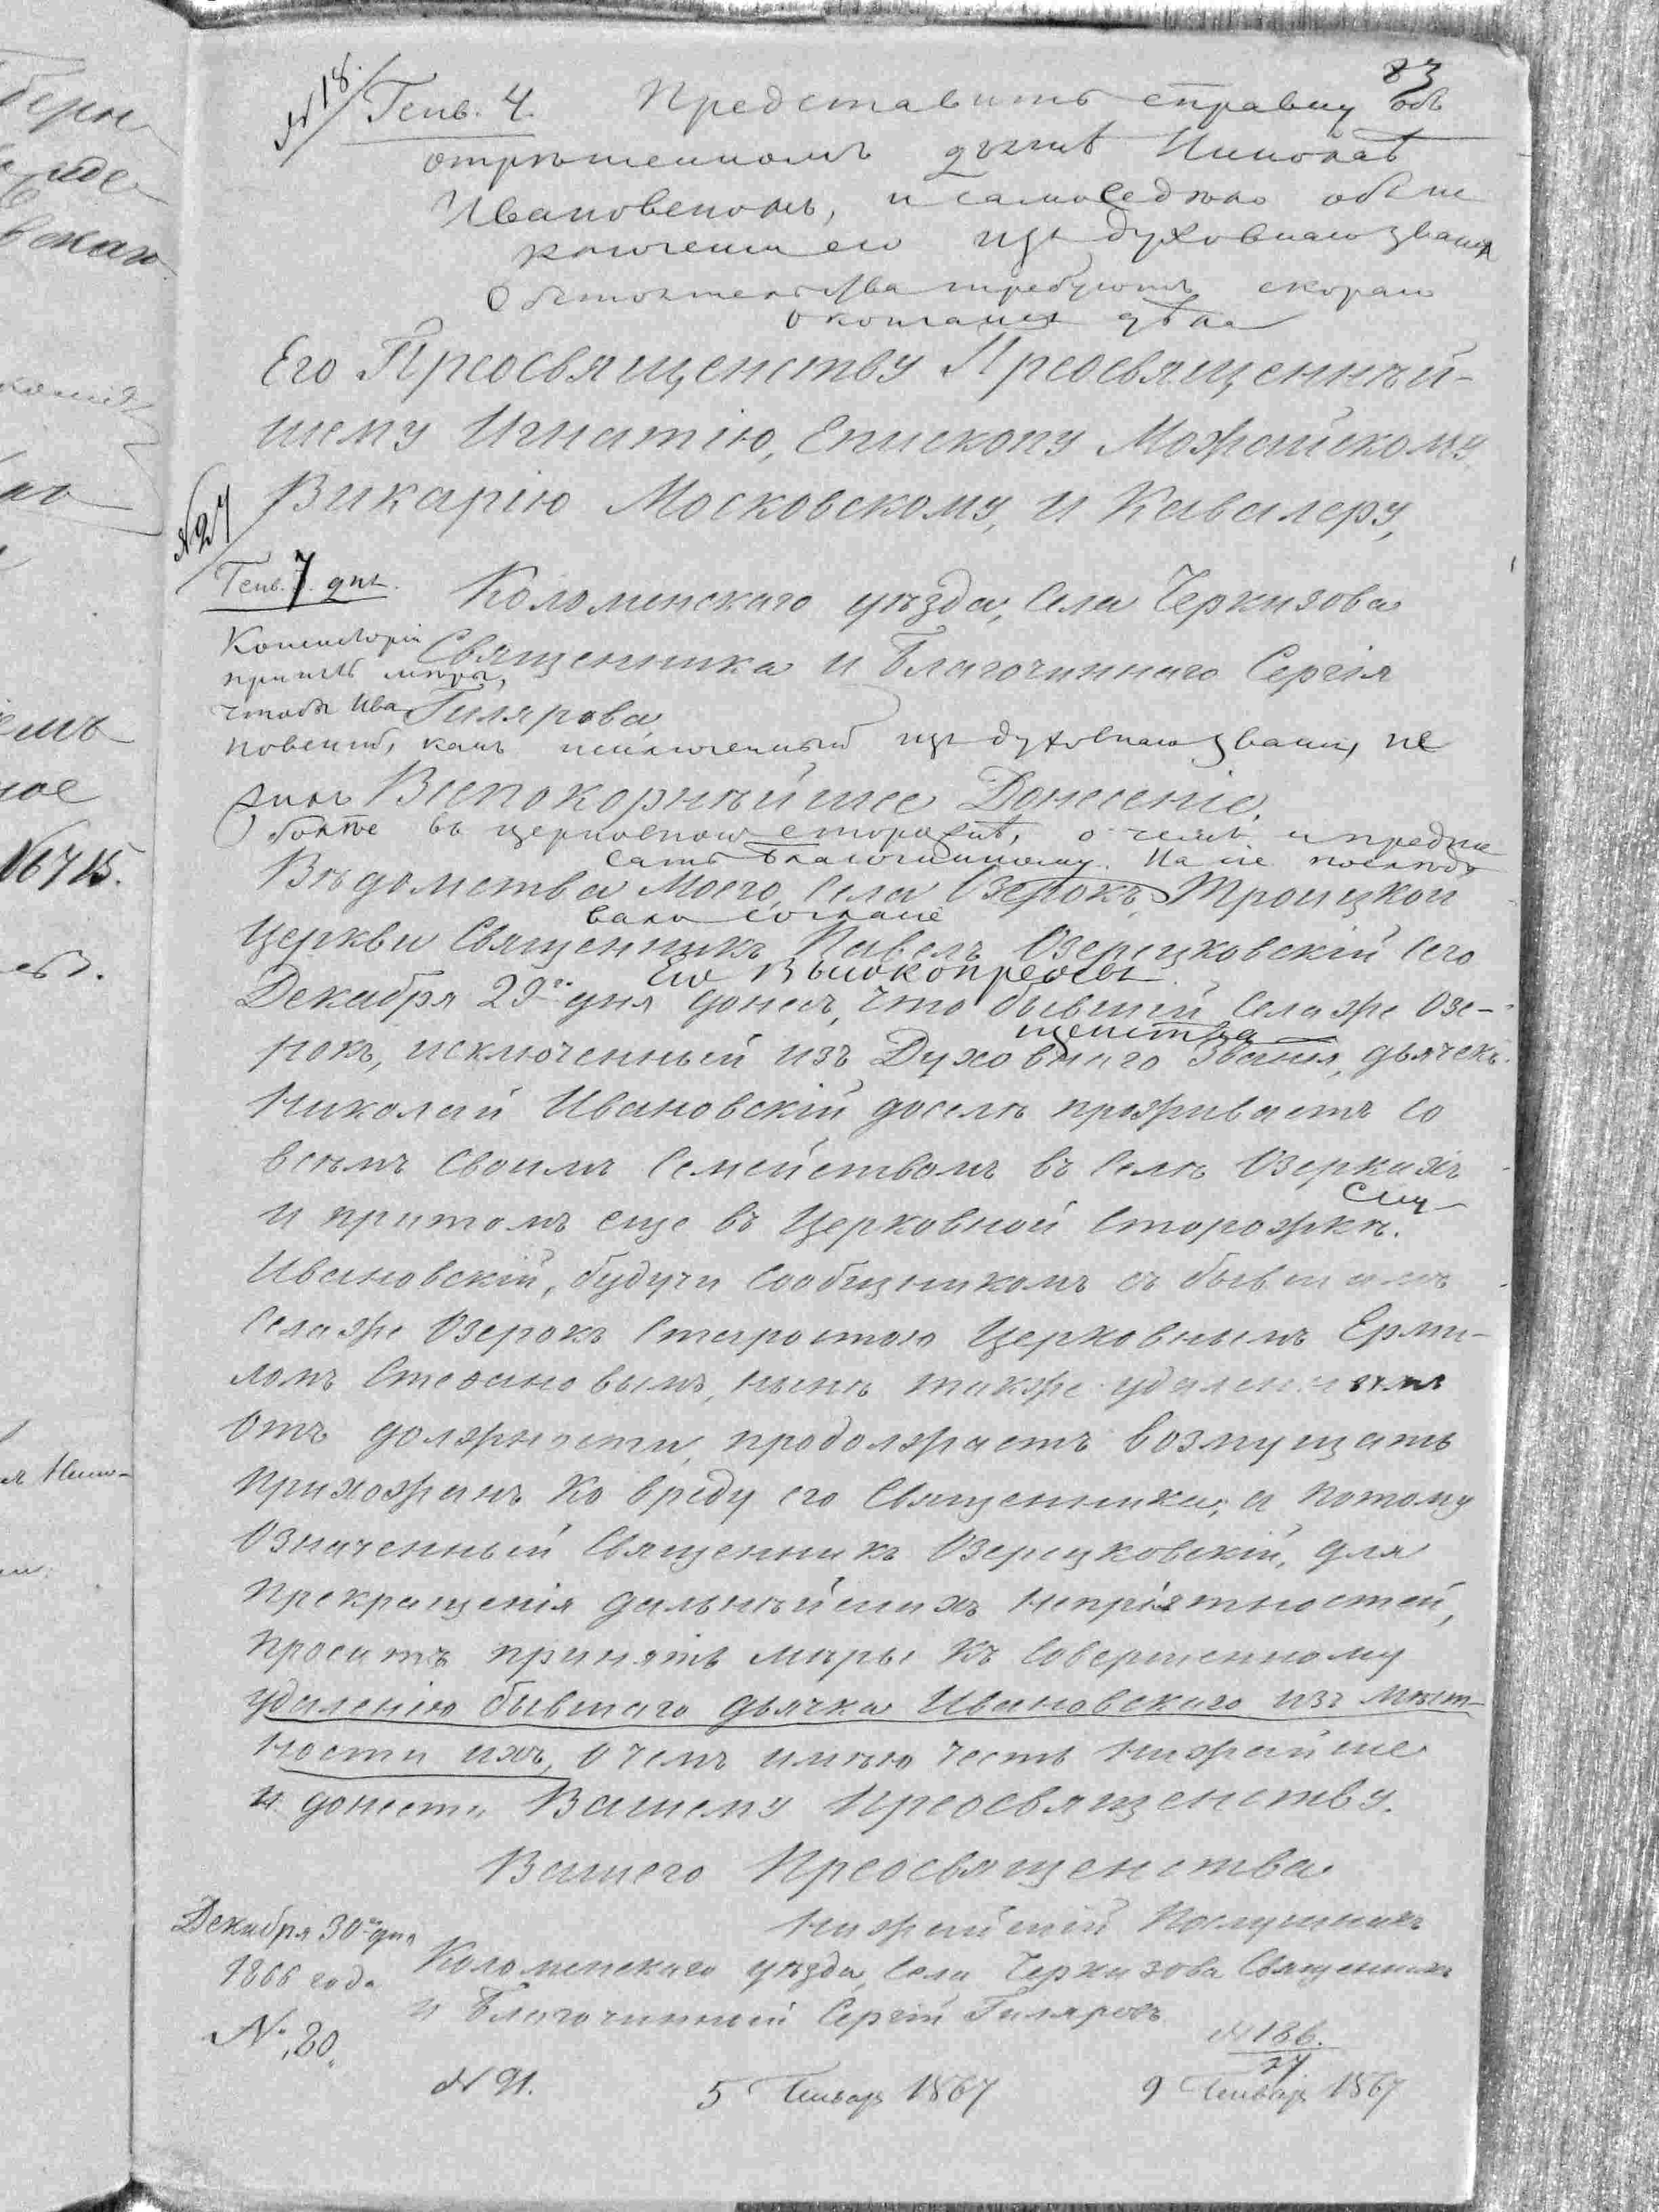 83
№ 18.
Генв. 4. Представить справку объ
отрѣшенномъ дьячкѣ Николаѣ
Ивановскомъ, и
ключеніи его изъ духовнаго званія
Обстоятельства требуютъ скораго
окончанія дѣла
Его Преосвященству Преосвященнѣй-
шему Игнатію, Епископу Можайскому,
Викарію Московскому, и Кавалеру,
№ 27
Генв. 7 дня.
Коломенскаго уѣзда, Села Черкизова
Священника и Благочиннаго Сергія
Гилярова,
Консисторіи
принять мѣры,
чтобы Ива
новскій, какъ исключенный изъ духовнаго званія, не
жилъ
болѣе въ церковной сторожкѣ, о чемъ и предпи
сать Благочинному. На сіе послѣдо
вало согласіе
Его Высокопреосвя
щенства
Всепокорнѣйшее Донесеніе.
Вѣдомства моего, Села Озерокъ, Троицкой
Церкви Священникъ Павелъ Озерецковскій сего
Декабря 29го дня донесъ, что бывшій Села же Озе-
рокъ, исключенный изъ Духовнаго Званія, дьячекъ
Николай Ивановскій доселѣ проживаетъ со
всѣмъ своимъ Семействомъ въ Селѣ Озеркахъ
и притомъ еще въ Церковной Сторожкѣ.
Ивановскій, будучи Сообщникомъ съ бывшимъ
Села же Озерокъ Старостою Церковнымъ Ерми-
ломъ Стефановымъ, нынѣ также удаленнымъ
отъ должности, продолжаетъ возмущать
прихожанъ ко вреду его Священника; а потому
Означенный Священникъ Озерецковскій, для
прекращенія дальнѣйшихъ непріятностей,
проситъ принять мѣры къ Совершенному
удаленію бывшаго дьячка Ивановскаго изъ мѣст-
ности ихъ, о чемъ имѣю честь нижайше
и донести Вашему Преосвященству.
Вашего Преосвященства
Нижайшій Послушникъ
Коломенскаго уѣзда, Села Черкизова Священникъ
и Благочинный Сергій Гиляровъ
Декабря 30го дня
1866 года
№ 80.
№ 91.
5 Январ 1867
№ 186.
27
9 Январ 1867